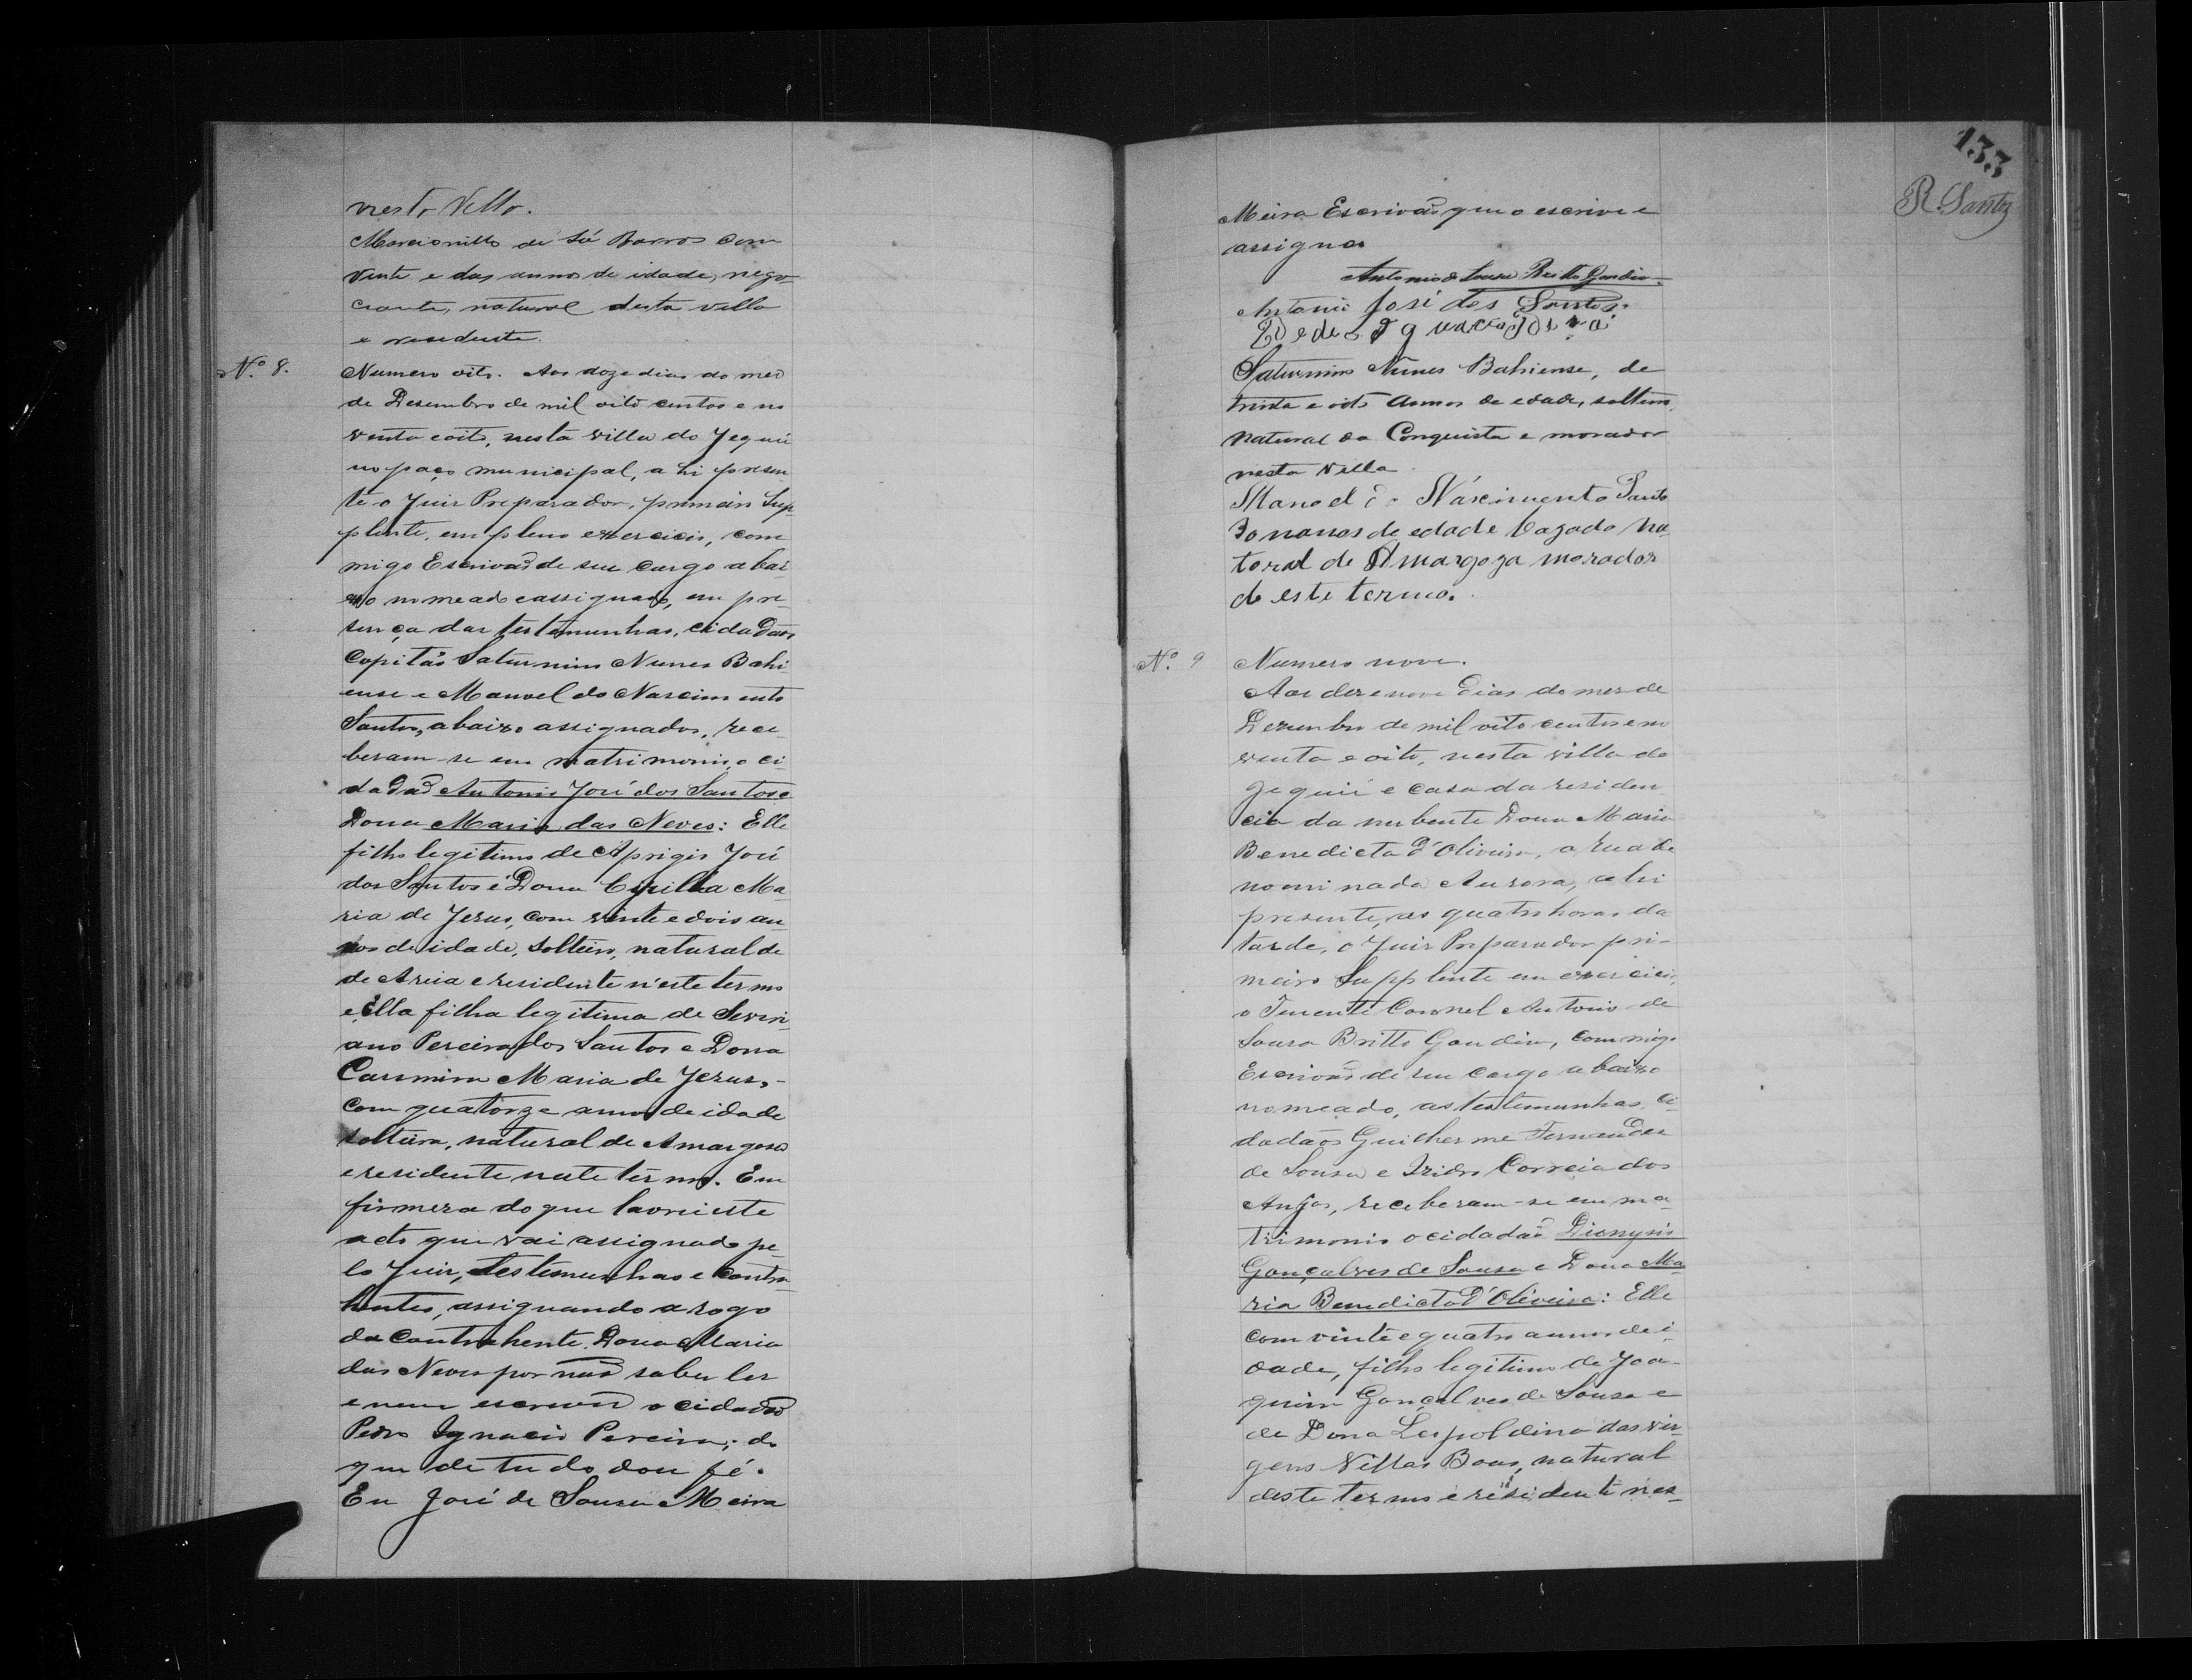 nesta Villa.
Marcionillo de Sá Barros com
vinte e dois annos de idade, nego-
ciante, natural desta villa
e residente.
Nº 8.
Numero oito. Aos doze dias do mes
de Desembro de mil oito centos e no
venta e oito, nesta villa do Jequié
no paço municipal, ahi presen-
te o Juiz Preparador, primeiro Sup-
plente, em pleno exercicio, com
migo Escrivão de seu cargo abai-
xo nomeado e assignado, em pre-
sença das testemunhas, cidadãos
Capitão Saturnino Nunes Bahi-
ense e Manoel do Nascimento
Santos, abaixo assignados, rece-
beram-se em matrimonio, o ci-
dadão Antonio José dos Santos e
Dona Maria das Neves: Elle
filho legitimo de Aprigio José
dos Santos e Dona Cirilla Ma-
ria de Jesus, com vinte e dois an-
nos de idade, solteiro, natural de
de Areia e residente n'este termo
e Ella filha legitima de Severi-
ano Pereira dos Santos e Dona
Casimira Maria de Jesus,
com quatorze annos de idade
solteira, natural de Amargosa
e residente neste termo. Em
firmeza do que lavrei este
acto que vai assignado pe-
lo Juiz, testemunhas e contra-
hentes, assignando a rogo
da contrahente Dona Maria
das Neves por não saber ler
e nem escrever o cidadão
Pedro Ignacio Pereira; do
que de tudo dou fé.
Eu José de Sousa Meira
133
R. Santos
Meira Escrivão que o escrivi e
assigno
Antonio de Sousa Britto Gondim.
Antonio José dos Santos.
Pedro Ignacio Pereira
Saturnino Nunes Bahiense, de
trinta e oito annos de edade, solteiro,
natural da Conquista e morador
nesta villa.
Manoel do Nascimento Santos
30 nanos de edade Cazado na
toral de Amargoza morador
d este termo.
Nº 9
Numero nove.
Aos dezenove dias do mes de
Dezembro de mil oito centos e no
venta e oito, nesta villa do
Jequié e casa da residen
cia da nubente Dona Maria
Benedicta d'Oliveira, a rua de
nominada Aurora, ahi
presente, as quatro horas da
tarde, o Juiz Preparador pri-
meiro Supplente em exercicio,
o Tenente Coronel Antonio de
Sousa Britto Gondim, commigo
Escrivão de seu cargo abaixo
nomeado, as testemunhas, ci-
dadãos Guilherme Fernandes
de Sousa e Izidro Correia dos
Anjos, receberam-se em ma-
trimonio o cidadão Dionysio
Gonçalves de Sousa e Dona Ma-
ria Benedicta d'Oliveira: Elle
com vinte e quatro annos de i-
dade, filho legitimo de Joa-
quim Gonçalves de Sousa e
de Dona Leopoldina das Vir-
gens Villas Boas, natural
deste termo e residente nes-